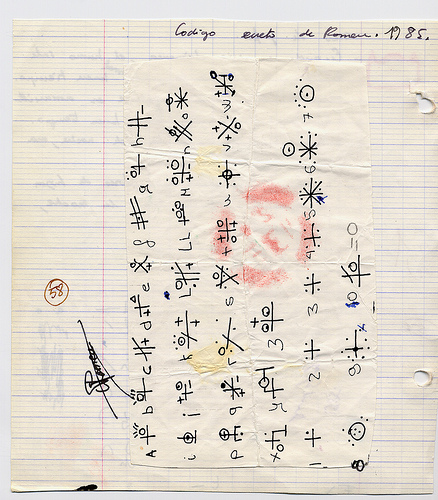 Codigo de 1985.
A b c d e f g h
i j k L LL M n
P q r s t u v w
x y z
1 2 3 4 5 6 7
8 9 10 = 0
58